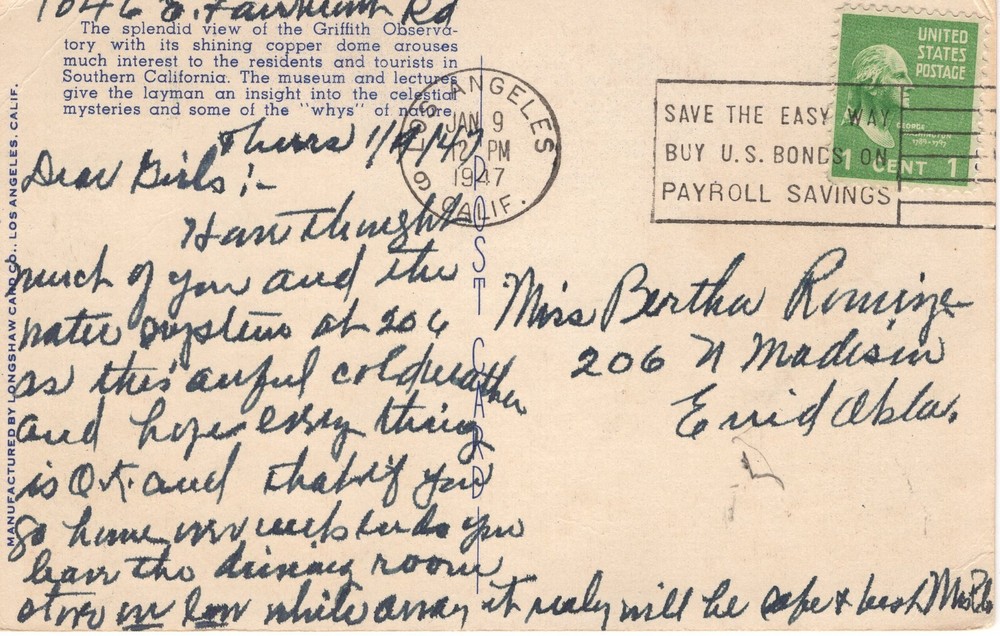 1046 S. Rd
The splendid view of the Griffith Observa-
tory with its shining copper dome arouses
much interest to the residents and tourists in
Southern California. The museum and lectures
give the layman an insight into the celestial
mysteries and some of the "whys" of nature.
Thurs 1/9/47
Dear Girls:-
Have thought
much of you and the
water system at 206
as this awful cold weather
and hope every thing
is O.K. and that if you
go home over week ends you
leave the dining room
stove on low while away it realy will be safe & best Mrs
MANUFACTURED BY LONGSHAW CARD CO., LOS ANGELES, CALIF.
POST CARD
LOS ANGELES 9
JAN 9
12 PM
1947
CALIF.
SAVE THE EASY WAY
BUY U.S. BONDS ON
PAYROLL SAVINGS
UNITED
STATES
POSTAGE
GEORGE
WASHINGTON
1789-1797
1 CENT 1
Miss Bertha Romine
206 N Madison
Enid Okla.